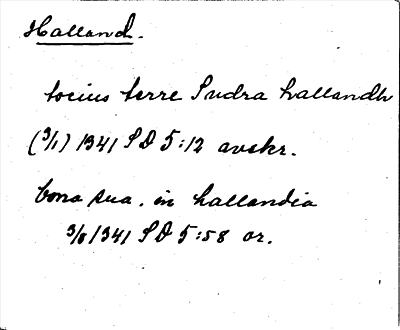 Halland.
tocius terre Sudra hallandh
(3/1) 1341 SD 5:12 avskr.
bona sua. in hallandia
3/8 1341 SD 5:58 or.